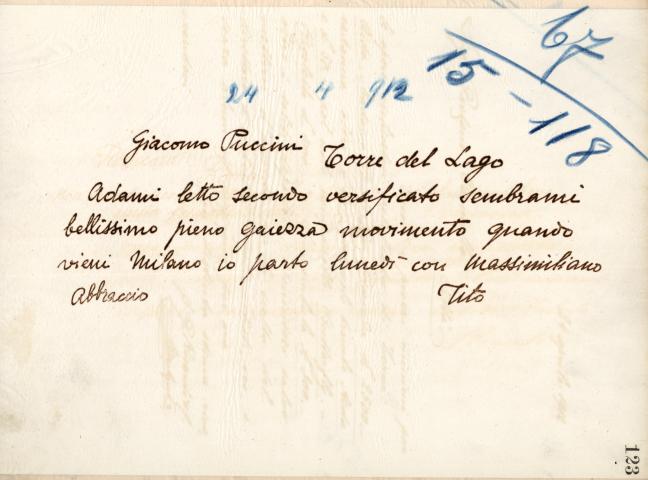 67
15-118
24 4 912
Giacomo Puccini Torre del Lago
Adami letto secondo versificato sembrami
bellissimo pieno gaiezza movimento quando
vieni Milano io parto lunedì con Massimiliano
Abbraccio Tito
123